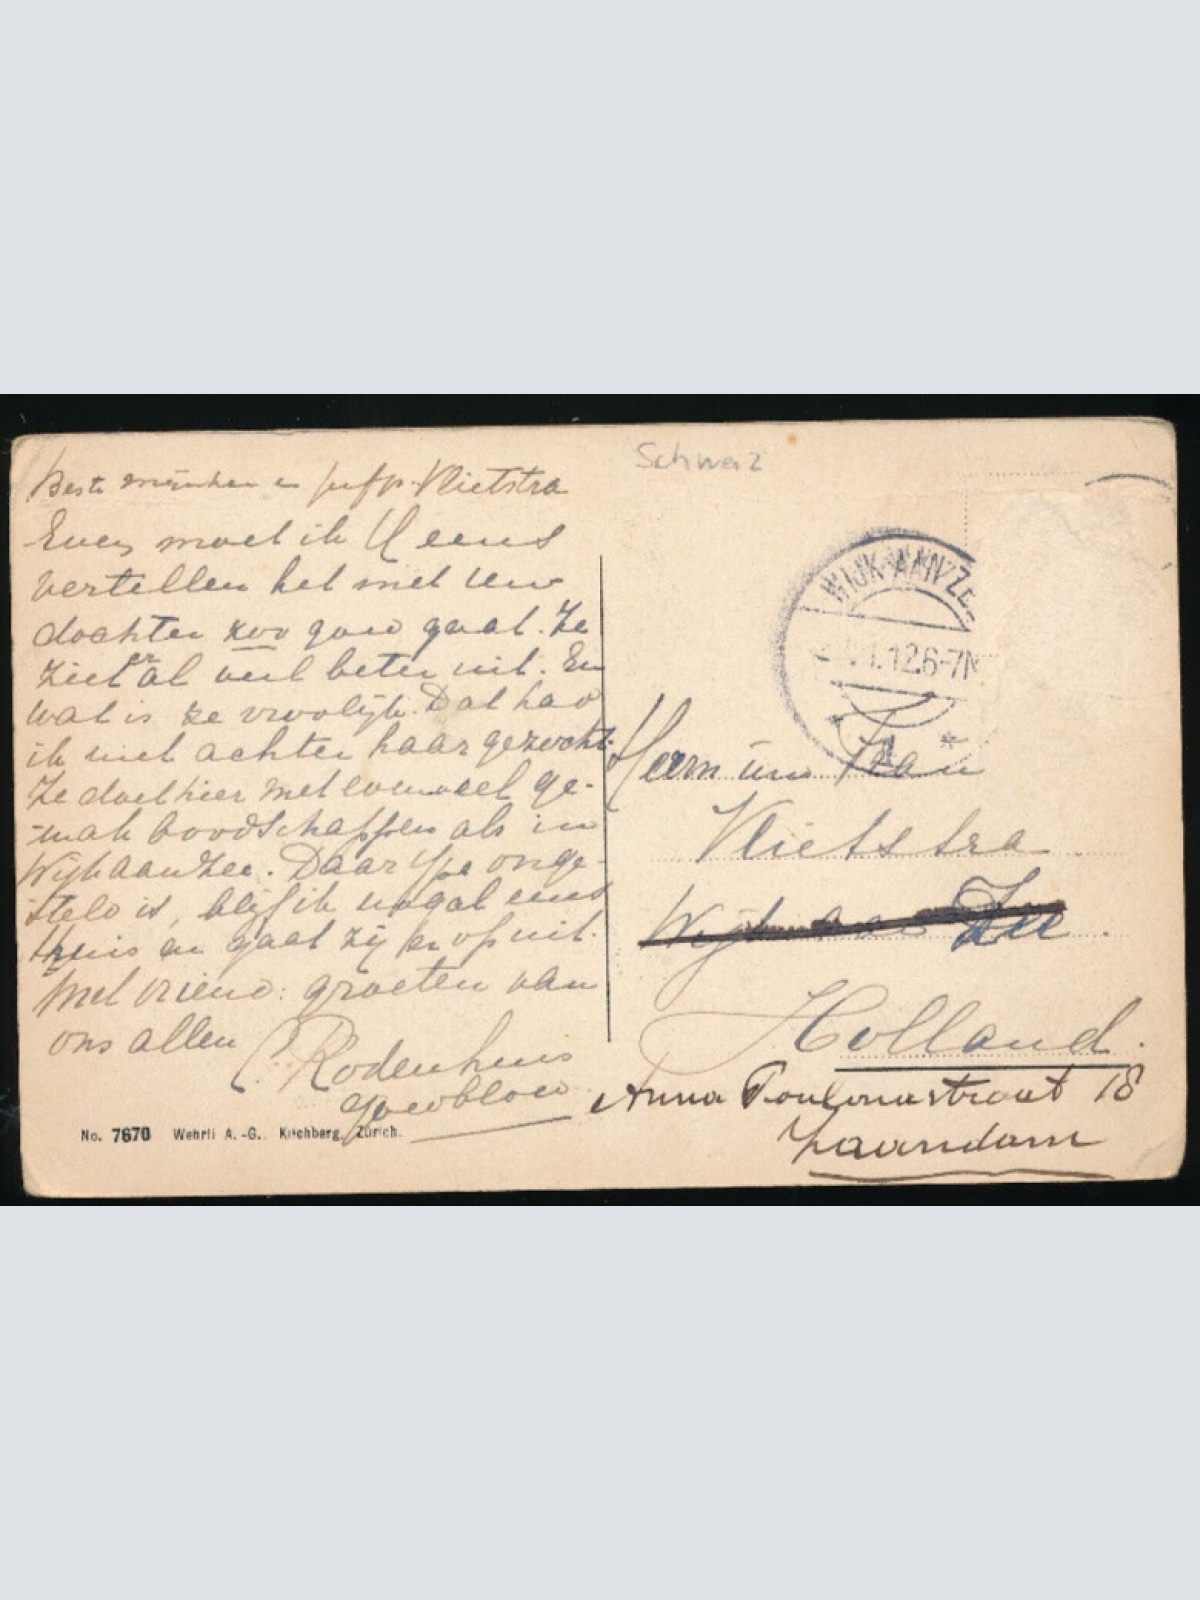 Beste mijnheer en juffr. Vlietstra
Even moet ik U eens
vertellen het met uw
dochter zoo goed gaat. Ze
ziet er al veel beter uit. En
wat is ze vroolijk. Dat had
ik niet achter haar gezocht.
Ze doet hier met evenveel ge-
mak boodschappen als in
Wijk aan Zee. Daar Ype onge-
steld is, blijf ik nogal eens
thuis en gaat zij er op uit.
Met vriend. groeten van
ons allen
C. Rodenhuis
No. 7670 Wehrli A.-G., Kilchberg, Zürich.
Schweiz
WIJK AAN ZE
.1.12.6-7N
1 *
Herrn un Frau
Vlietstra
Wijk aan Zee.
Holland.
Anna Paulownastraat 18
Zaandam